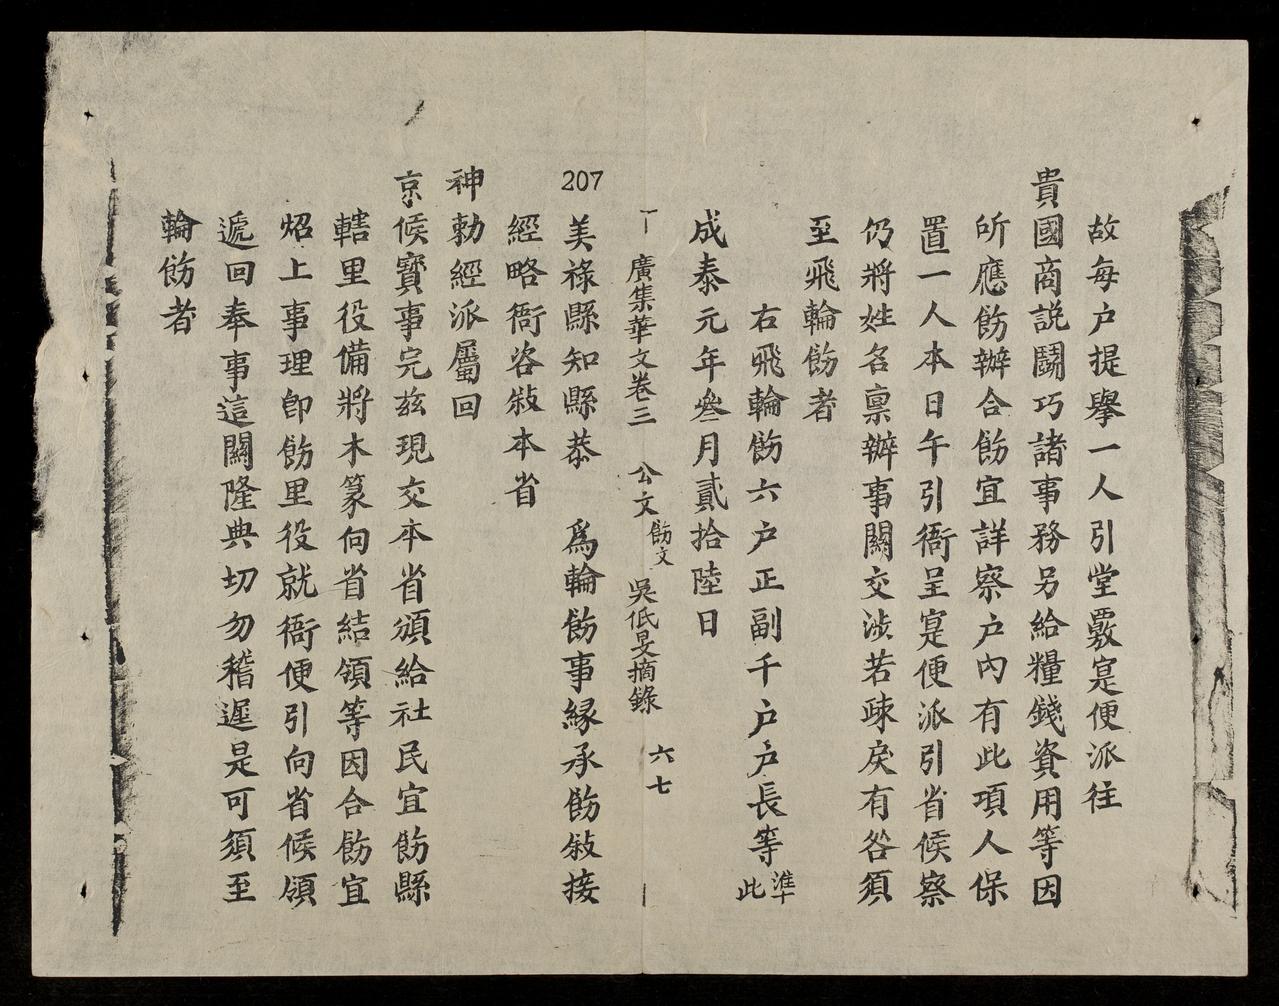 故每户提舉一人引堂覈寔便派往
貴國商説鬪巧諸事務另給糧錢資用等因
所應飭辦合飭宜詳察户內有此項人保
置一人本日午引衙呈寔便派引省候察
仍將姓名禀辦事關交涉若疎戾有咎須
至飛輪飭者
右飛輪飭六户正副千户户長等准此
成泰元年叄月貳拾陸日
廣集華文卷三 公文飭文 吳低旻摘錄 六七
207 美祿縣知縣恭 爲輪飭事緣承飭敍接
經略衙咨敍本省
神勅經派屬回
京候寳事完玆現交本省頒給社民宜飭縣
轄里役備將木篆向省結領等因合飭宜
炤上事理卽飭里役就衙便引向省候領
遞回奉事這關隆典切勿稽遲是可須至
輪飭者